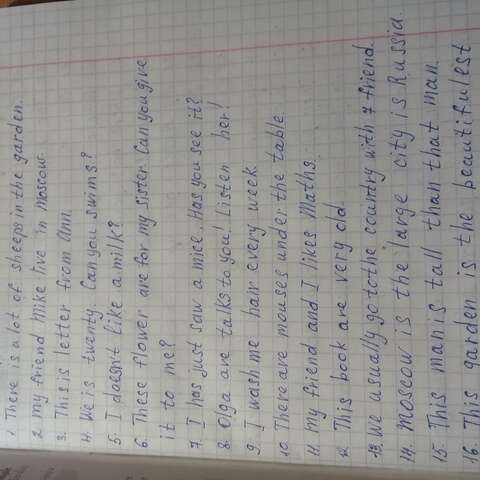 1. There is a lot of sheeps in the garden.
2. My friend Mike live in Moscow.
3. This is letter from Ann.
4. We is twenty. Can you swims?
5. I doesn't like a milk?
6. These flower are for my sister. Can you give
it to me?
7. I has just saw a mice. Has you see it?
8. Olga are talks to you! Listen her!
9. I wash me hair every week.
10. There are mouses under the table.
11. My friend and I likes Maths.
12. This book are very old.
13. We usually go to the country with 7 friend.
14. Moscow is the large city is Russia.
15. This man is tall than that man.
16. This garden is the beautifulest